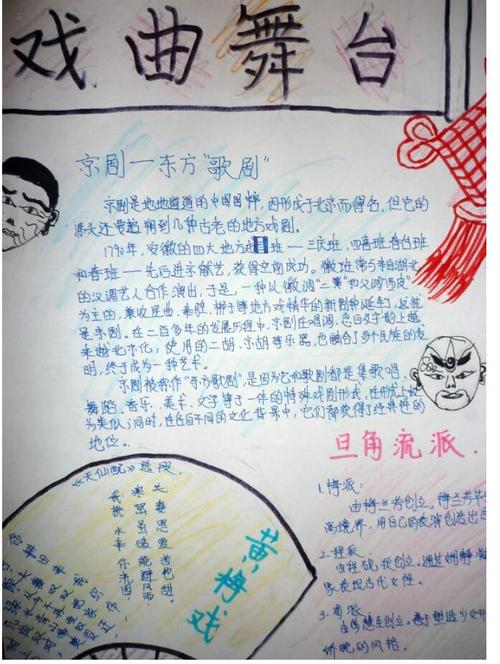 戏曲舞台
京剧—东方"歌剧"
京剧是地地道道的中国国粹,因形成于北京而得名,但它的
源头还要追溯到几种古老的地方戏剧。
1790年,安徽的四大地方戏班——三庆班、四喜班、春台班
和春班——先后进京献艺,获得空前成功。徽班常与来自湖北
的汉调艺人合作演出,于是,一种以徽调"二簧"和汉调"西皮"
为主的,兼收昆曲、秦腔、梆子等地方戏精华的新剧种诞生了,这就
是京剧。在二百多年的发展历程中,京剧在唱词、念白及字韵上越
来越北京化,使用的二胡、京胡等乐器,也融合了多个民族的发
明,终于成为一种艺术
京剧被称作"东方歌剧",是因为它和歌剧都是集歌唱、
舞蹈、音乐、美术、文学等于一体的特殊戏剧形式,在形式上较
为类似;同时,在各自不同的文化背景中,它们都获得了经典性的
地位。
旦角流派
1.梅派:
由梅兰芳创立。梅兰芳
2.程派
由程砚秋创立。通过
象表现古代女性。
3.荀派
由荀慧生创立。善于塑造少女
娇昵的风格。
《天仙配》选段
黄梅戏
寒窑虽破能避风雨
夫妻恩爱苦也甜